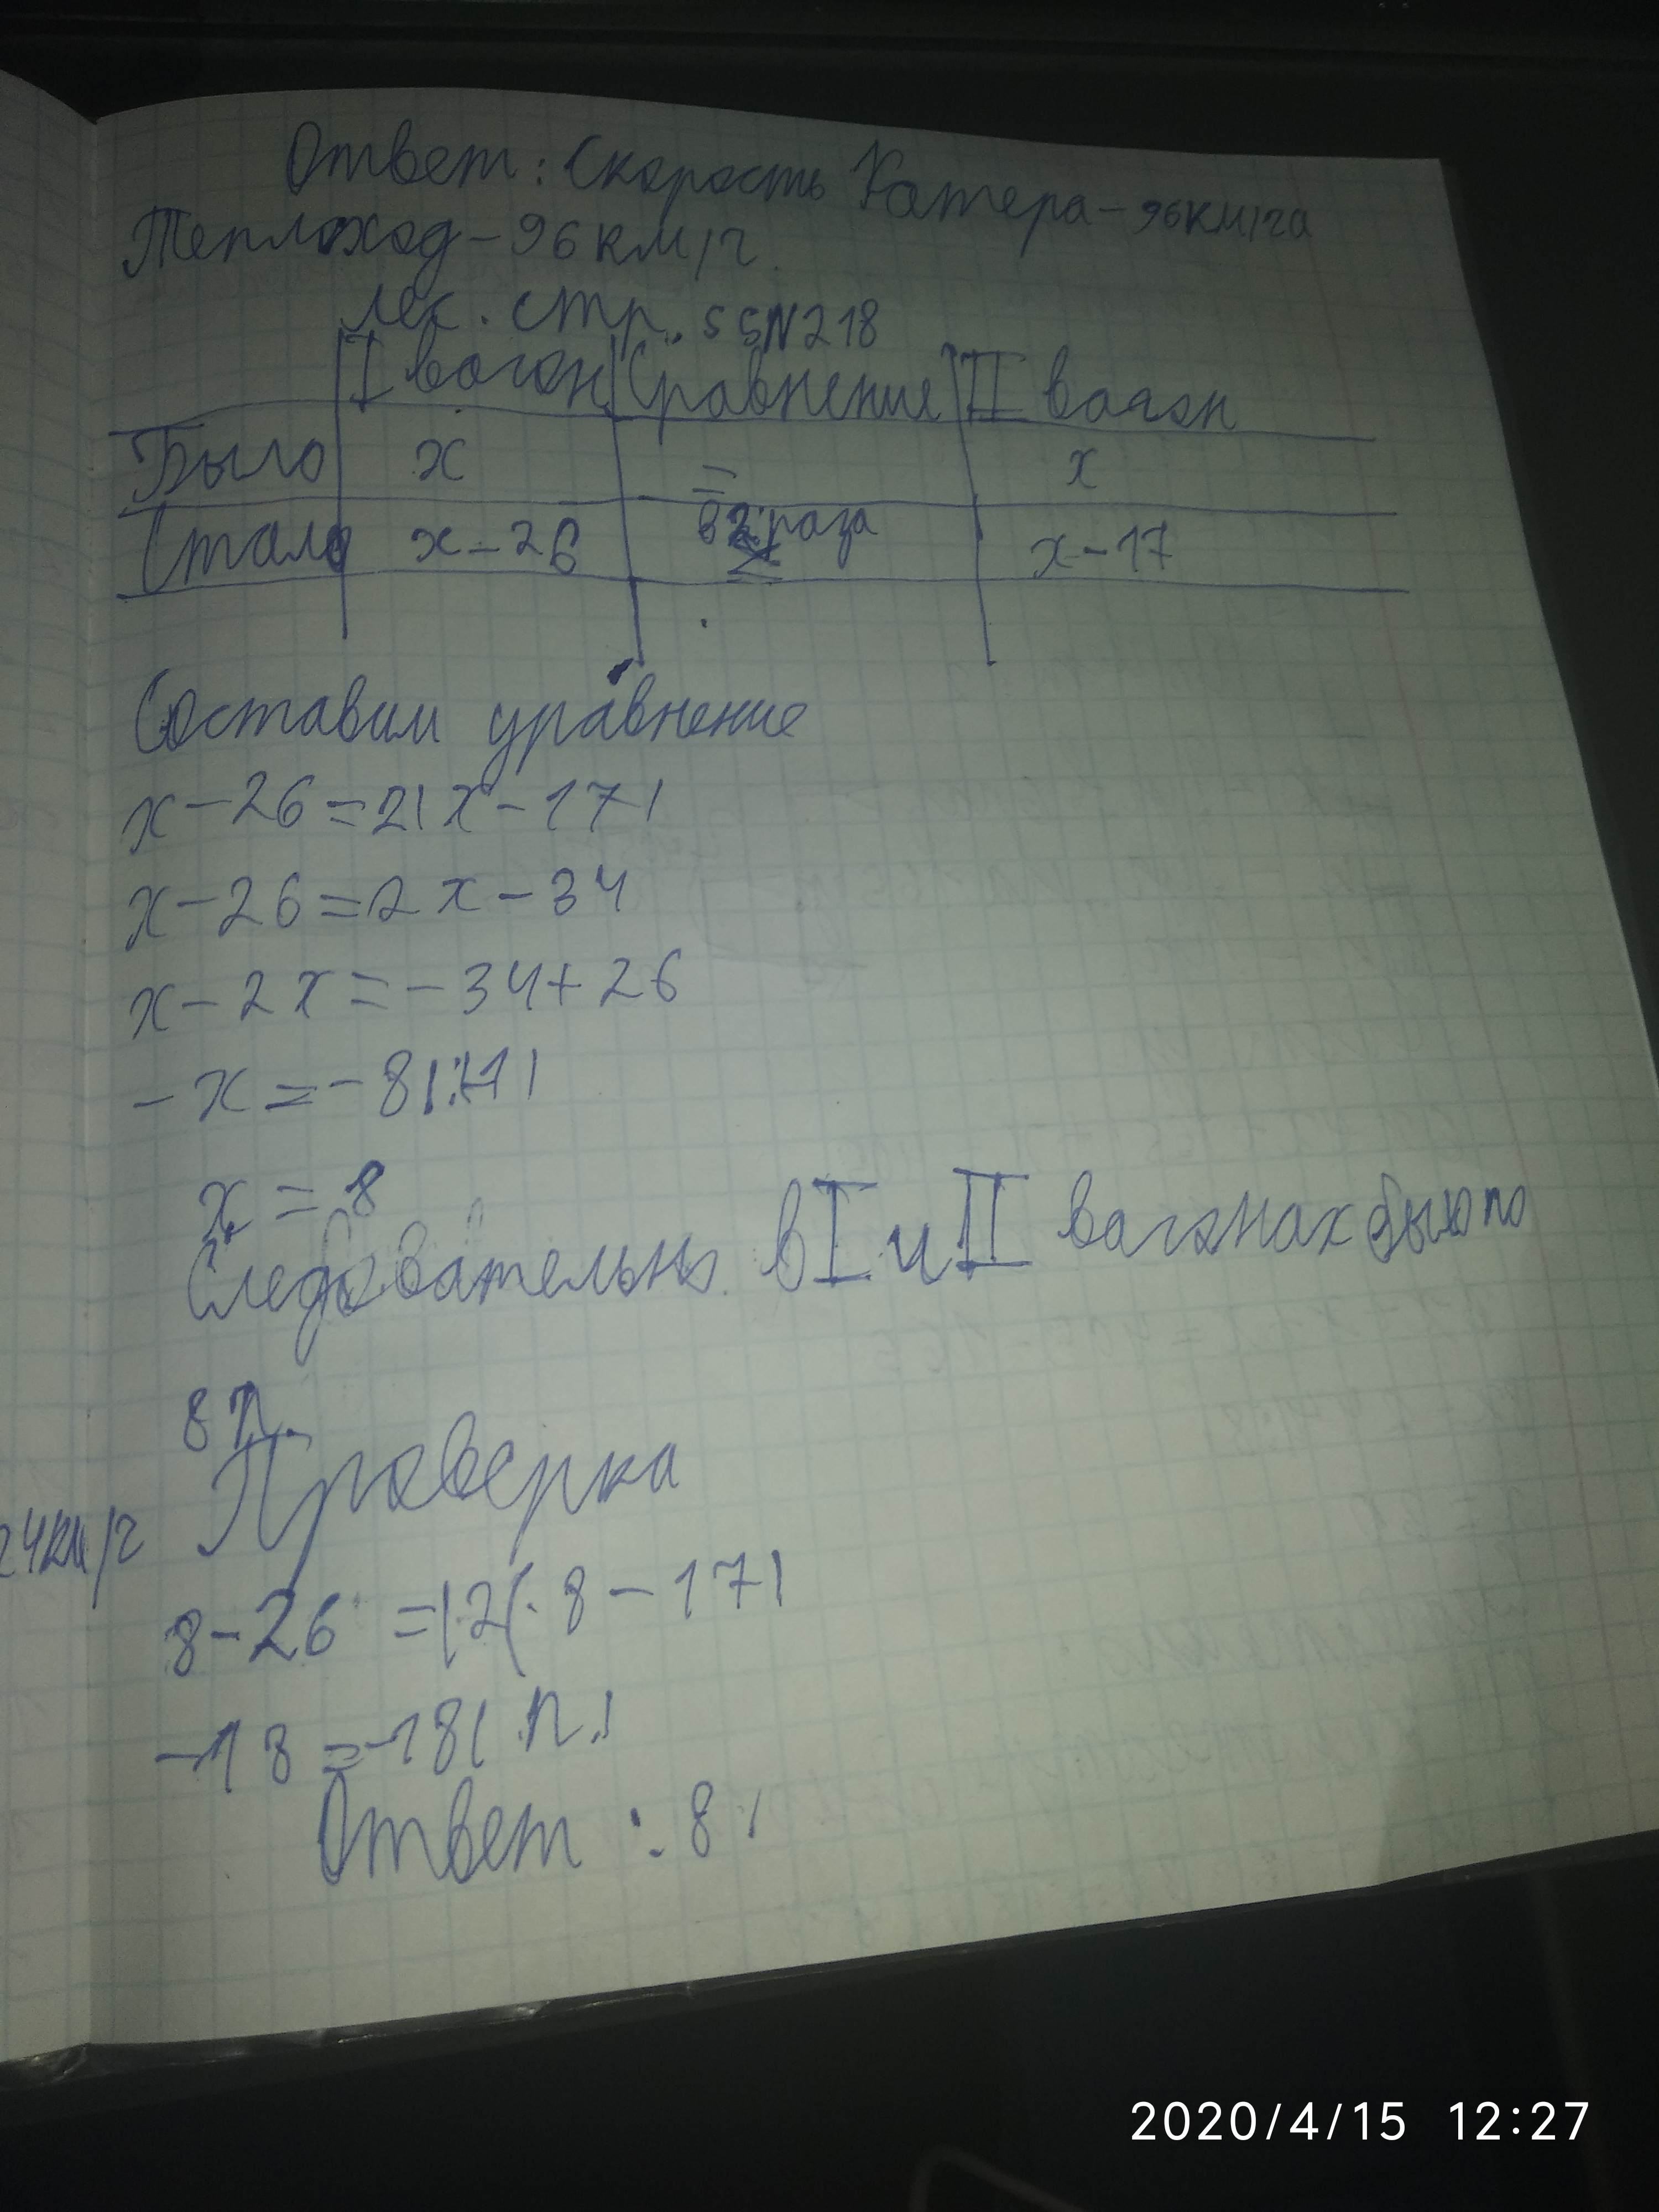 Ответ: Скорость Катера - 96км/га
Теплоход - 96 км/г.
лес. стр. 55 N218
I вагон Сравнение II вагон
Было x = x
Стало x - 26 в 2 раза x - 17
Составим уравнение
x - 26 = 2(x - 17)
x - 26 = 2x - 34
x - 2x = - 34 + 26
- x = - 8
x = 8
Следовательно в I и II вагонах было по
8 т.
Проверка
24км/г
8 - 26 = 2(8 - 17)
-18 = -18( п.)
Ответ : 8
2020/4/15 12:27